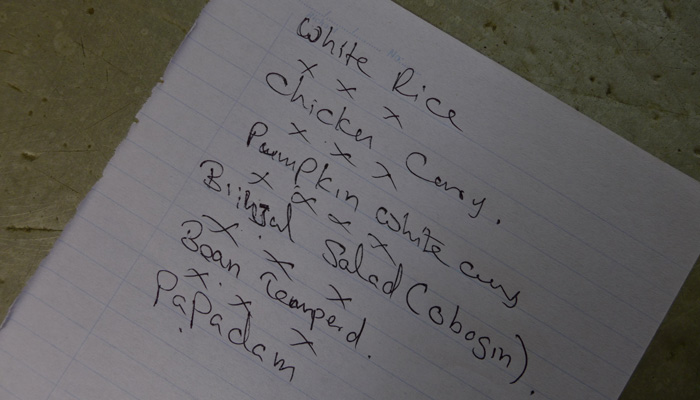 White Rice
x x x
Chicken Curry.
x x x
Pumpkin white curry
x x x x
Brinjal Salad (obogin).
x x x
Bean Temperd.
x x x
Papadam